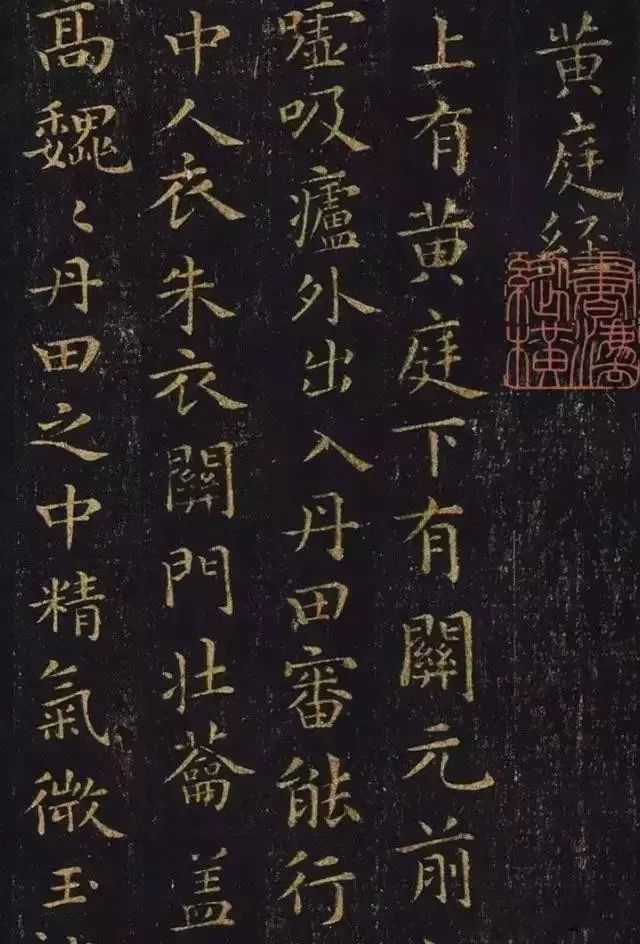 黄庭經
上有黄庭下有關元前
嘘吸廬外出入丹田審能行
中人衣朱衣關門壯蘥盖
高魏〻丹田之中精氣微玉